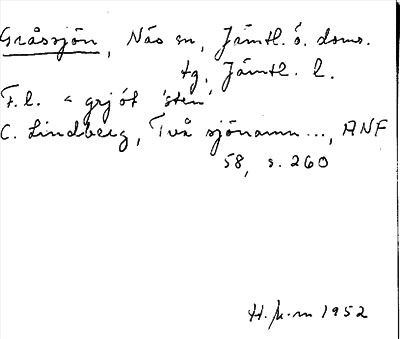 Gråssjön, Näs sn, Jämtl. ö. doms.
tg, Jämtl. l.
F.l. < grjót 'sten'
C. Lindberg, Två sjönamn..., ANF
58, s. 260
1952